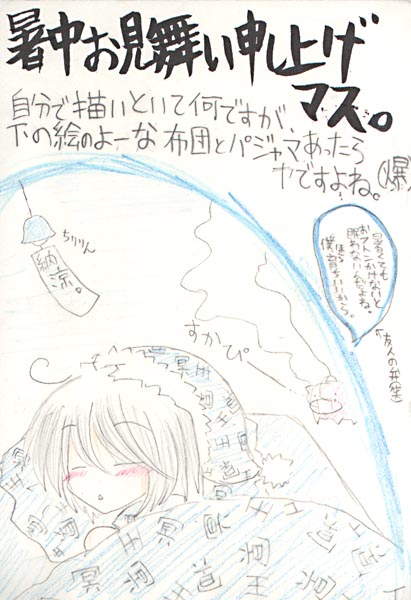 暑中お見舞い申し上げ
マス。
自分で描いといて何ですが、
下の絵のよーな布団とパジャマあったら
ヤですよね。(爆)
ちりりん
納涼。
暑くても
おフトンかけないと
眠れないんだよね。
ほら
僕、育ちいいから。
(友人の弁(笑))
すかぴー
冥 酒 王 道